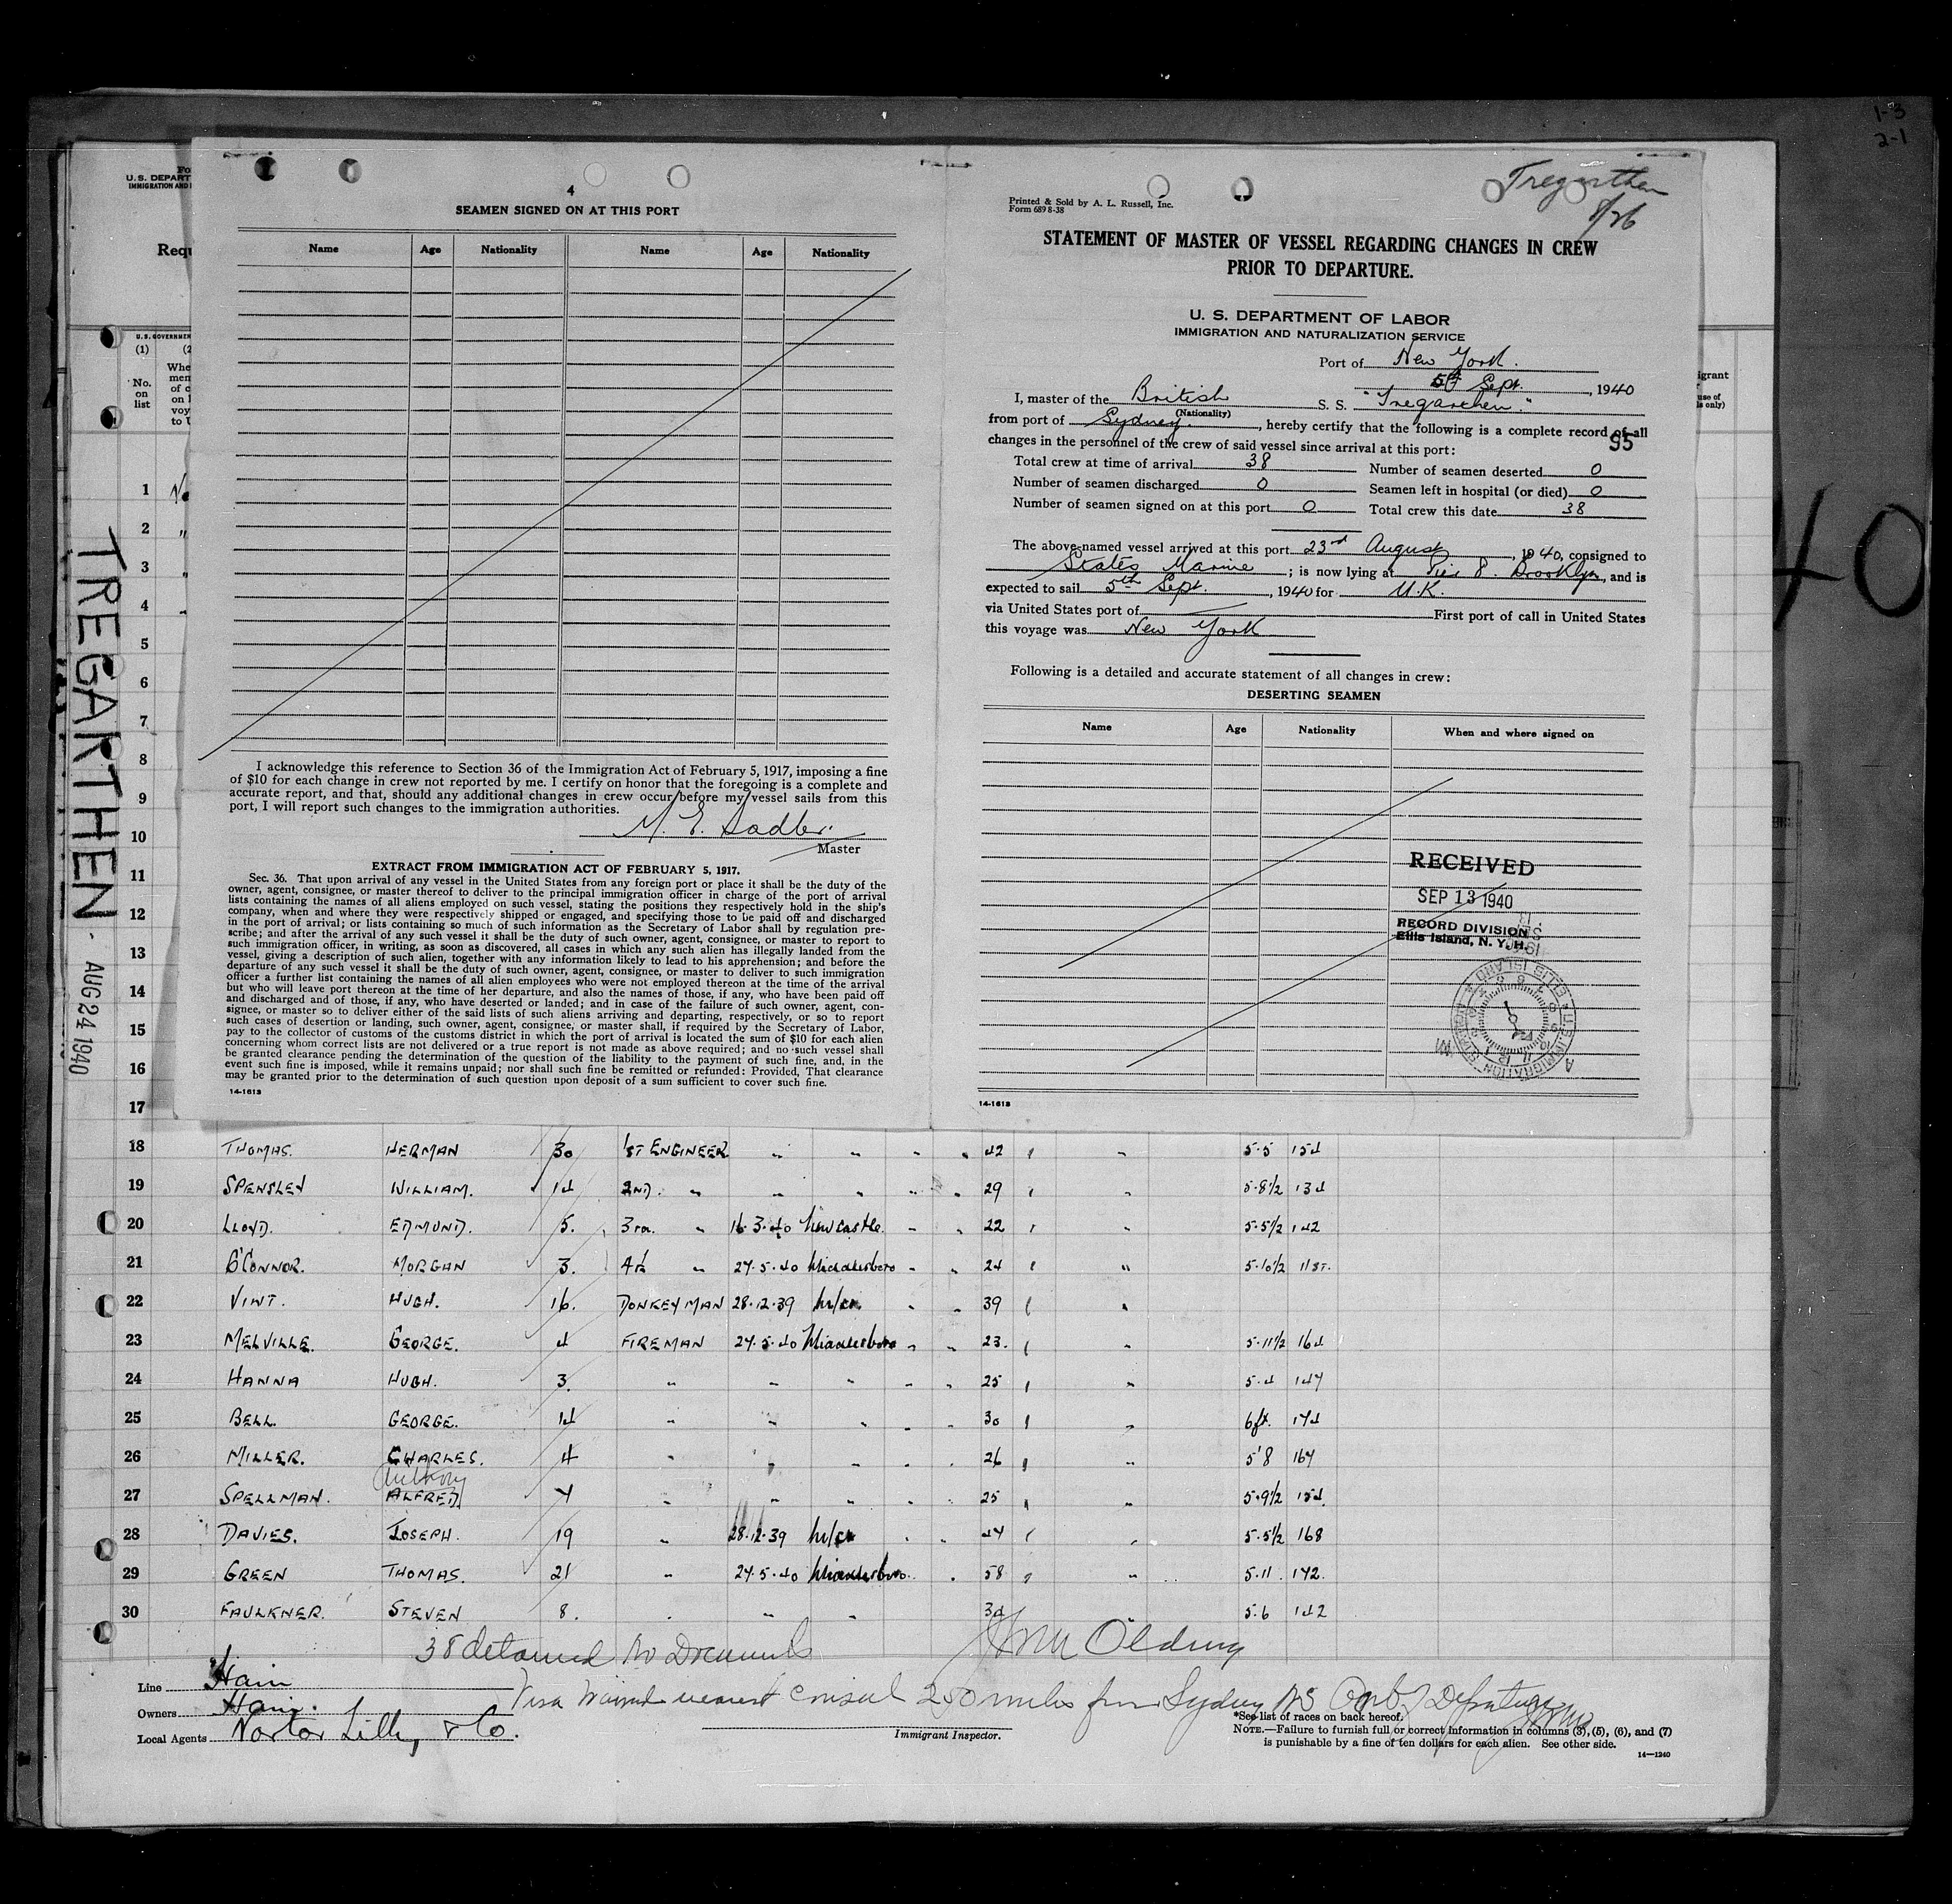 1-3
2-1
40
TREGARTHEN. AUG 24 1940
Fo
U. S. DEPART
IMMIGRATION AND
Requ
U. S. GOVERNMEN
(1) (2
No. on list
Whe
mem
of c
on l
voy
to U
igrant
use of
s only)
1
2 "
3 "
4
5
6
7
8
9
10
11
12
13
14
15
16
17
4
SEAMEN SIGNED ON AT THIS PORT
Name Age Nationality Name Age Nationality
I acknowledge this reference to Section 36 of the Immigration Act of February 5, 1917, imposing a fine
of $10 for each change in crew not reported by me. I certify on honor that the foregoing is a complete and
accurate report, and that, should any additional changes in crew occur before my vessel sails from this
port, I will report such changes to the immigration authorities.
M. E. Sadler.
Master
EXTRACT FROM IMMIGRATION ACT OF FEBRUARY 5, 1917.
Sec. 36. That upon arrival of any vessel in the United States from any foreign port or place it shall be the duty of the
owner, agent, consignee, or master thereof to deliver to the principal immigration officer in charge of the port of arrival
lists containing the names of all aliens employed on such vessel, stating the positions they respectively hold in the ship's
company, when and where they were respectively shipped or engaged, and specifying those to be paid off and discharged
in the port of arrival; or lists containing so much of such information as the Secretary of Labor shall by regulation pre-
scribe; and after the arrival of any such vessel it shall be the duty of such owner, agent, consignee, or master to report to
such immigration officer, in writing, as soon as discovered, all cases in which any such alien has illegally landed from the
vessel, giving a description of such alien, together with any information likely to lead to his apprehension; and before the
departure of any such vessel it shall be the duty of such owner, agent, consignee, or master to deliver to such immigration
officer a further list containing the names of all alien employees who were not employed thereon at the time of the arrival
but who will leave port thereon at the time of her departure, and also the names of those, if any, who have been paid off
and discharged and of those, if any, who have deserted or landed; and in case of the failure of such owner, agent, con-
signee, or master so to deliver either of the said lists of such aliens arriving and departing, respectively, or so to report
such cases of desertion or landing, such owner, agent, consignee, or master shall, if required by the Secretary of Labor,
pay to the collector of customs of the customs district in which the port of arrival is located the sum of $10 for each alien
concerning whom correct lists are not delivered or a true report is not made as above required; and no such vessel shall
be granted clearance pending the determination of the question of the liability to the payment of such fine, and, in the
event such fine is imposed, while it remains unpaid; nor shall such fine be remitted or refunded: Provided, That clearance
may be granted prior to the determination of such question upon deposit of a sum sufficient to cover such fine.
14-1613
Tregarthen
8/26
Printed & Sold by A. L. Russell, Inc.
Form 689 8-38
STATEMENT OF MASTER OF VESSEL REGARDING CHANGES IN CREW
PRIOR TO DEPARTURE.
U. S. DEPARTMENT OF LABOR
IMMIGRATION AND NATURALIZATION SERVICE
Port of New York.
5th Sept. , 1940
I, master of the British S. S. "Tregarthen."
(Nationality)
from port of Sydney. , hereby certify that the following is a complete record of all
95
changes in the personnel of the crew of said vessel since arrival at this port:
Total crew at time of arrival 38 Number of seamen deserted 0
Number of seamen discharged 0 Seamen left in hospital (or died) 0
Number of seamen signed on at this port 0 Total crew this date 38
The above-named vessel arrived at this port 23rd August , 1940, consigned to
States Marine ; is now lying at Pier 8. Brooklyn, and is
expected to sail 5th Sept. , 1940 for U.K.
via United States port of First port of call in United States
this voyage was New York
Following is a detailed and accurate statement of all changes in crew:
DESERTING SEAMEN
Name Age Nationality When and where signed on
RECEIVED
SEP 13 1940
RECORD DIVISION
Ellis Island, N. Y. H.
U.S. IMMIGRATION ELLIS ISLAND
14-1613
18 THOMAS. HERMAN 30 1ST ENGINEER " " " " 42 " " 5·5 154
19 SPENSLEY WILLIAM. 14 2ND. " " " " " 29 " " 5·8½ 134
20 LLOYD. EDMUND. 5. 3rd. " 16·3·40 Newcastle. " " 22 " " 5·5½ 142
21 O'CONNOR. MORGAN 3. 4th " 27·5·40 Middlesboro " " 24 " " 5·10½ 11ST.
22 VINT. HUGH. 16. DONKEYMAN 28·12·39 M/cr. " " 39 " "
23 MELVILLE. GEORGE. 4 FIREMAN 27·5·40 Middlesboro " " 23. " " 5·11½ 164
24 HANNA HUGH. 3. " " " " " 25 " " 5·4 147
25 BELL. GEORGE. 14 " " " " " 30 " " 6ft. 174
26 MILLER. CHARLES. 4 " " " " " 26 " " 5'8 167
Anthony
27 SPELLMAN. ALFRED 7 " " " " " 25 " " 5·9½ 154.
28 DAVIES. JOSEPH. 19 " 28·12·39 M/cr " " 44 " " 5·5½ 168
29 GREEN THOMAS. 21 " 27·5·40 Middlesboro. " 58 " " 5·11. 172.
30 FAULKNER. STEVEN 8. " " " 34 5·6 142
38 detained No Documents Olding
Line Hain
Visa Waived nearest Consul 250 miles from Sydney NS
Owners Hain.
Local Agents Norton Lilly, & Co.
Immigrant Inspector.
*See list of races on back hereof.
NOTE.—Failure to furnish full or correct information in columns (3), (5), (6), and (7)
is punishable by a fine of ten dollars for each alien. See other side.
14—1240